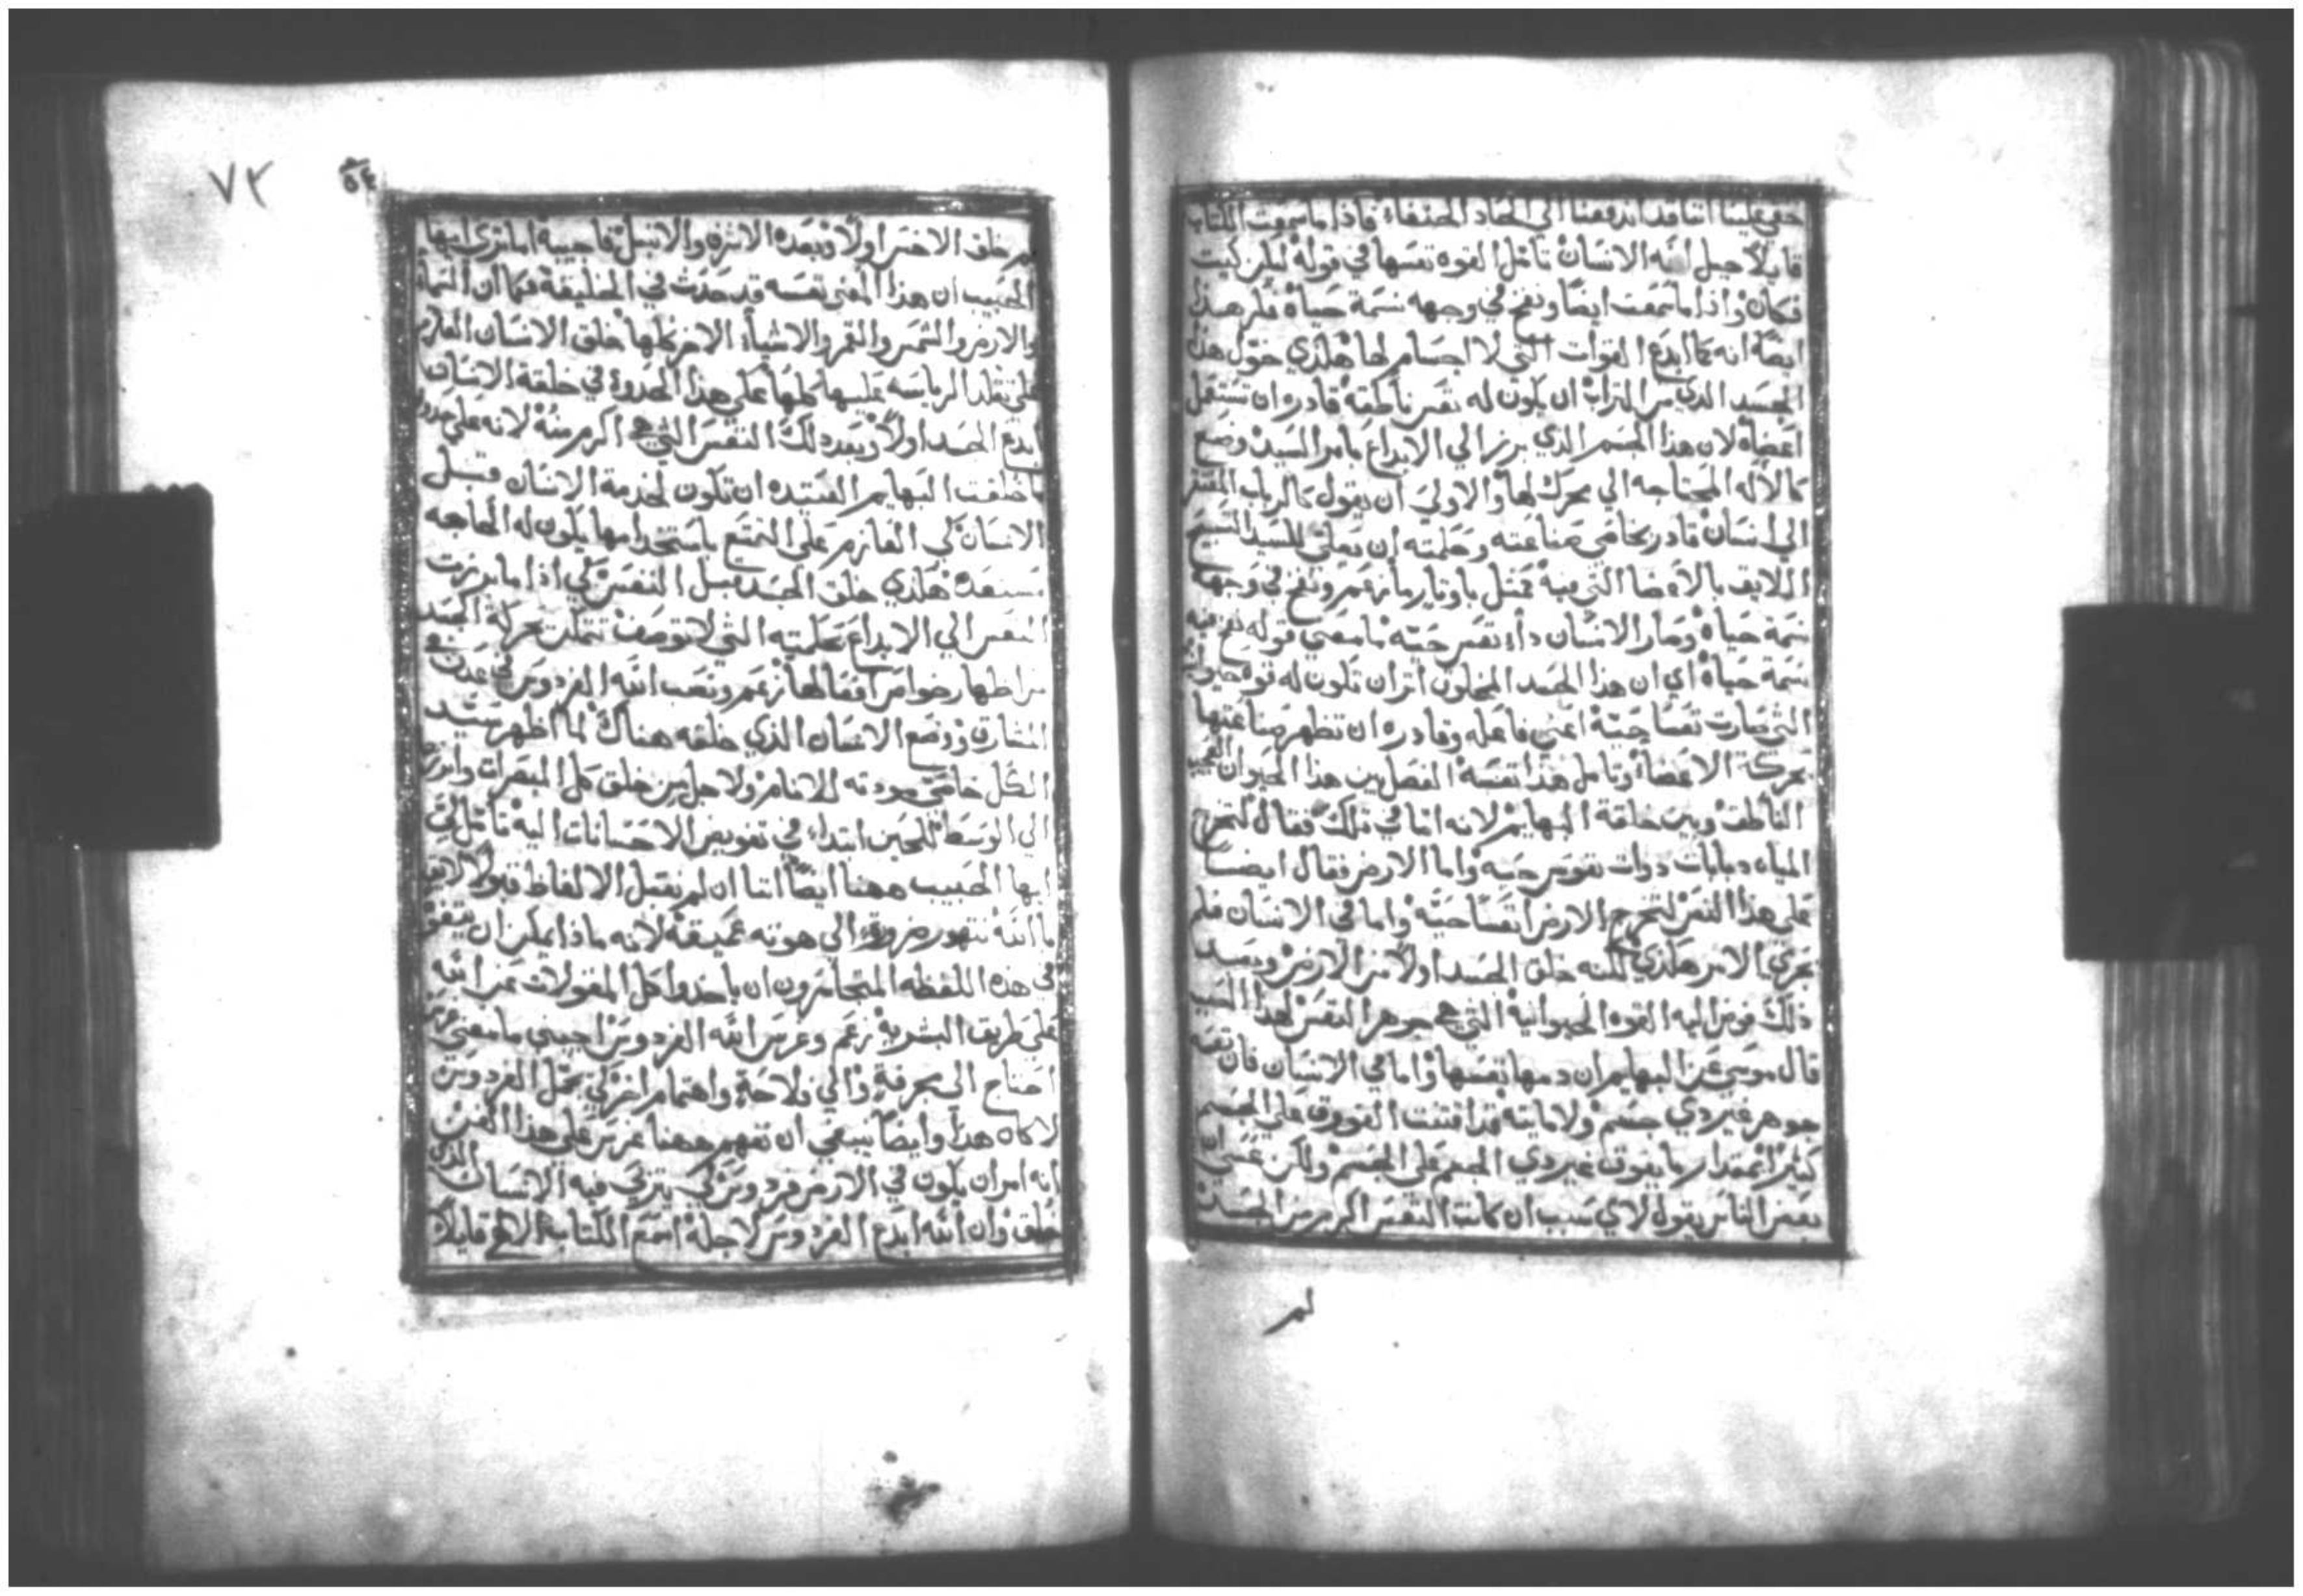 حقي علينا اننا قد اندفعنا الي الحاد الحنفاء فاذا ما سمعت الكتاب
قايلاً جبل الله الانسان تامل القوه نفسها في قوله ليكن كيت
فكان واذا ما سمعت ايضاً ونفخ في وجهه نسمة حياه فكر هذا
ايضاً انه كما ابدع القوات التي لا اجسام لها هكذي خول هذا
الجسد الذي من التراب ان يكون له نفس ناطقه قادره ان تستعمل
اعضاه لان هذا الجسم الذي برز الي الابداع بامر السيد وضع
كالاله المحتاجه الي محرك لها والاولي ان يقول كالرباب المفتقر
الي انسان قادر بخاص صناعته وحكمته ان يعلي للسيد التسبيح
اللايق بالاعضا التي فيه كمثل باوتار ما زعم ونفخ في وجهه
نسمة حياه وصار الانسان ذا نفس حيه ما معني قوله نفخ فيه
نسمة حياه اي ان هذا الجسد المخلوق اثر ان تكون له قوه حيوانيه
التي صارت نفسا حيه اعني فاعله وقادره ان تظهر صناعتها
بحركة الاعضاء وتامل هذا نفسه الفصل بين هذا الحيوان العجيب
الناطق وبين خلقة البهايم لانه اما في تلك فقال لتخرج
المياه دبابات ذوات نفوس حيه واما الارض فقال ايضا
علي هذا النص لتخرج الارض انفسا حيه واما في الانسان فلم
يجري الامر هكذي لكنه خلق الجسد اولاً من الارض وبعد
ذلك فوض اليه القوه الحيوانيه التي هي جوهر النفس لهذا السبب
قال موسي عن البهايم ان دمها نفسها واما في الانسان فان نفسه
جوهر غير ذي جسم ولا مايته قد اقتنت الفوق علي الجسم
كثيراً بمقدار ما يفوق غير ذي الجسم علي الجسم ولكن عسي ان
بعض الناس يقول لاي سبب ان كانت النفس اكرم من الجسد
لم
٧٣
٥٤
لم خلق الاخس اولاً وبعده الاشرف والانبل فاجيبه اما تري ايها
الحبيب ان هذا المعني نفسه قد حدث في الخليقه فكما ان السماء
والارض والشمس والقمر والاشياء الاخر كلها خلق الانسان العازم
علي تقلد الرياسه عليها كلها علي هذا الحذو في خلقة الانسان
ابدع الجسد اولاً وبعد ذلك النفس التي هي اكرم منه لانه علي حذو
ما خلقت البهايم العتيده ان تكون لخدمة الانسان قبل
الانسان كي العازم علي التمتع باستخدامها يكون له الحاجه
مستعده هكذي خلق الجسد قبل النفس كي اذا ما برزت
النفس الي الابداع بحكمته التي لا توصف تتمكن بحركة الجسد
من اظهار خواص افعالها زعم ونصب الله الفردوس في عدن نحو
المشارق ووضع الانسان الذي خلقه هناك لما اظهر سيد
الكل خاصتي جودته للانام ولاجل من خلق كل المبصرات وابرزه
الي الوسط للحين ابتداء في تفويض الاحسانات اليه تامل لي
ايها الحبيب ههنا ايضاً اننا ان لم نقبل الالفاظ قبولا لايقا
ما الله نتهور ضروره الي هوته عميقه لانه ماذا يمكن ان يتفوه
في هذه اللفظه المتجاسرون ان ياخذوا كل المقولات عن الله
علي طريق البشريه زعم وغرس الله الفردوس اجبني ما معني غرس
احتاج الي مجرفه والي فلاحه واهتمام اخر كي يجمل الفردوس
لا كان هذا وايضاً ينبغي ان نفهم ههنا غرس علي هذا الفن
انه امر ان يكون في الارض فردوس كي يتربي فيه الانسان الذي
خلق وان الله ابدع الفردوس لاجله اسمع الكتاب الالهي قايلاً